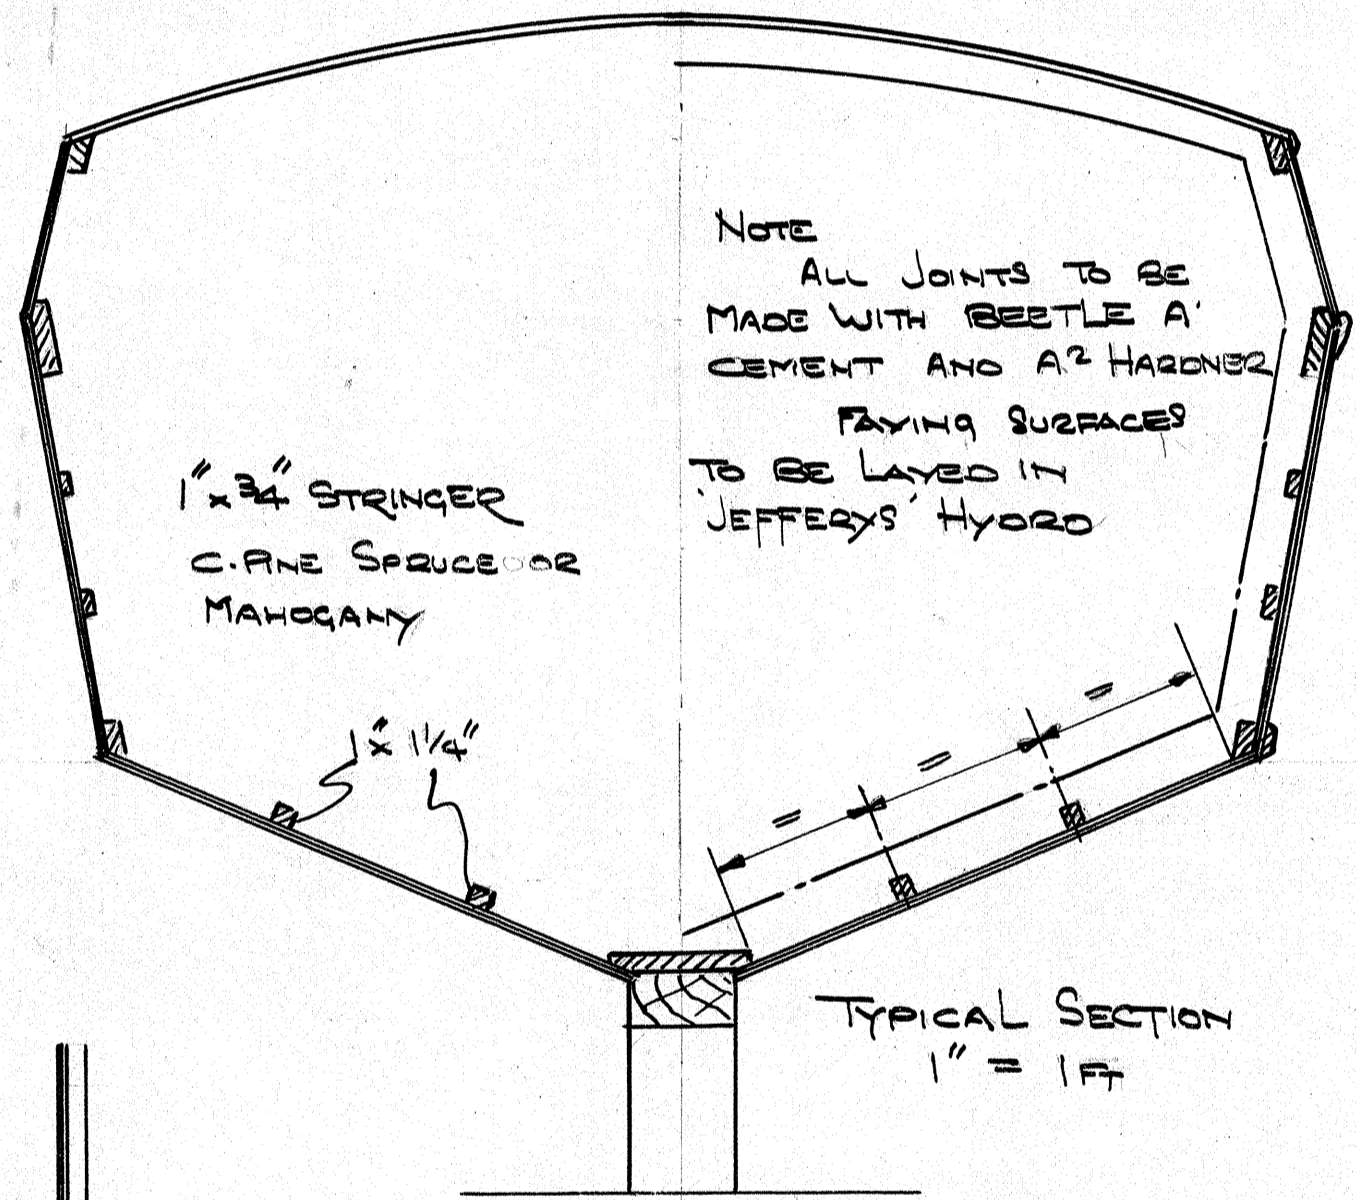 NOTE
ALL JOINTS TO BE
MADE WITH BEETLE A'
CEMENT AND A.2 HARDNER
FAYING SURFACES
TO BE LAYED IN
'JEFFERYS' HYDRO
1" x 3/4" STRINGER
C. PINE SPRUCE OR
MAHOGANY
1" x 1 1/4"
=
=
=
TYPICAL SECTION
1" = 1 FT